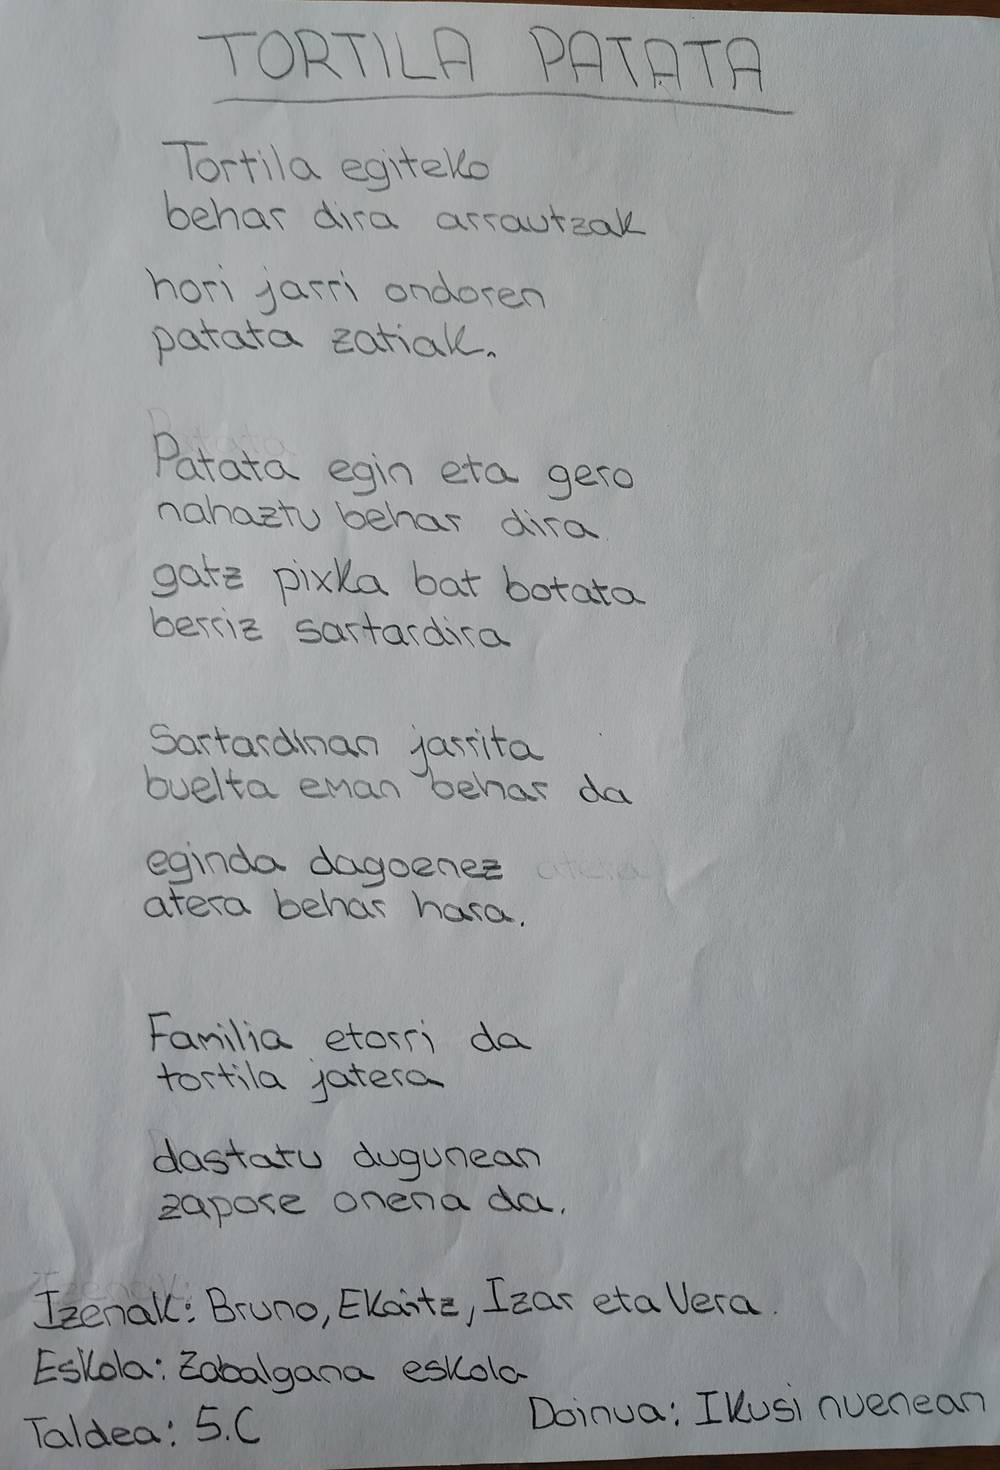 TORTILA PATATA
Tortila egiteko
behar dira arrautzak
hori jarri ondoren
patata zatiak.
Patata egin eta gero
nahaztu behar dira
gatz pixka bat botata
berriz sartardira
Sartardinan jarrita
buelta eman behar da
eginda dagoenez
atera behar hara.
Familia etorri da
tortila jatera
dastatu dugunean
zapore onena da.
Izenak: Bruno, Ekaitz, Izar eta Vera.
Eskola: Zabalgana eskola
Doinua: Ikusi nuenean
Taldea: 5.C